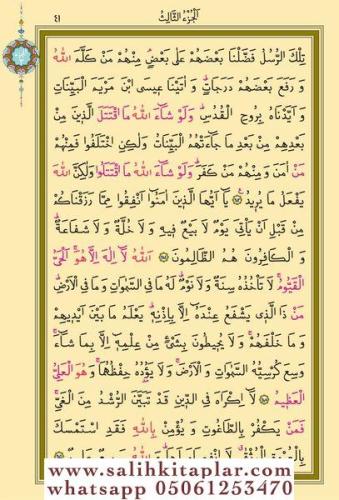 ٤١
اَلْجُزْءُ الثَّالِثُ
تِلْكَ الرُّسُلُ فَضَّلْنَا بَعْضَهُمْ عَلٰى بَعْضٍ مِنْهُمْ مَنْ كَلَّمَ اللّٰهُ
وَ رَفَعَ بَعْضَهُمْ دَرَجَاتٍ وَ اٰتَيْنَا عِيسَى ابْنَ مَرْيَمَ الْبَيِّنَاتِ
وَ اَيَّدْنَاهُ بِرُوحِ الْقُدُسِ وَلَوْ شَاءَ اللّٰهُ مَا اقْتَتَلَ الَّذِينَ مِنْ
بَعْدِهِمْ مِنْ بَعْدِ مَا جَاءَتْهُمُ الْبَيِّنَاتُ وَلٰكِنِ اخْتَلَفُوا فَمِنْهُمْ
مَنْ اٰمَنَ وَ مِنْهُمْ مَنْ كَفَرَ وَلَوْ شَاءَ اللّٰهُ مَا اقْتَتَلُوا وَلٰكِنَّ اللّٰهَ
يَفْعَلُ مَا يُرِيدُ يَا اَيُّهَا الَّذِينَ اٰمَنُوا اَنْفِقُوا مِمَّا رَزَقْنَاكُمْ
مِنْ قَبْلِ اَنْ يَأْتِيَ يَوْمٌ لَا بَيْعٌ فِيهِ وَ لَا خُلَّةٌ وَ لَا شَفَاعَةٌ
وَ الْكَافِرُونَ هُمُ الظَّالِمُونَ اَللّٰهُ لَا اِلٰهَ اِلَّا هُوَ اَلْحَيُّ
الْقَيُّومُ لَا تَأْخُذُهُ سِنَةٌ وَ لَا نَوْمٌ لَهُ مَا فِي السَّمٰوَاتِ وَ مَا فِي الْاَرْضِ
مَنْ ذَا الَّذِي يَشْفَعُ عِنْدَهُ اِلَّا بِاِذْنِهِ يَعْلَمُ مَا بَيْنَ اَيْدِيهِمْ
وَ مَا خَلْفَهُمْ وَ لَا يُحِيطُونَ بِشَيْءٍ مِنْ عِلْمِهِ اِلَّا بِمَا شَاءَ
وَسِعَ كُرْسِيُّهُ السَّمٰوَاتِ وَ الْاَرْضَ وَ لَا يَؤُدُهُ حِفْظُهُمَا وَ هُوَ الْعَلِيُّ
الْعَظِيمُ لَا اِكْرَاهَ فِي الدِّينِ قَدْ تَبَيَّنَ الرُّشْدُ مِنَ الْغَيِّ
فَمَنْ يَكْفُرْ بِالطَّاغُوتِ وَ يُؤْمِنْ بِاللّٰهِ فَقَدِ اسْتَمْسَكَ
www.salihkitaplar.com
whatsapp 05061253470